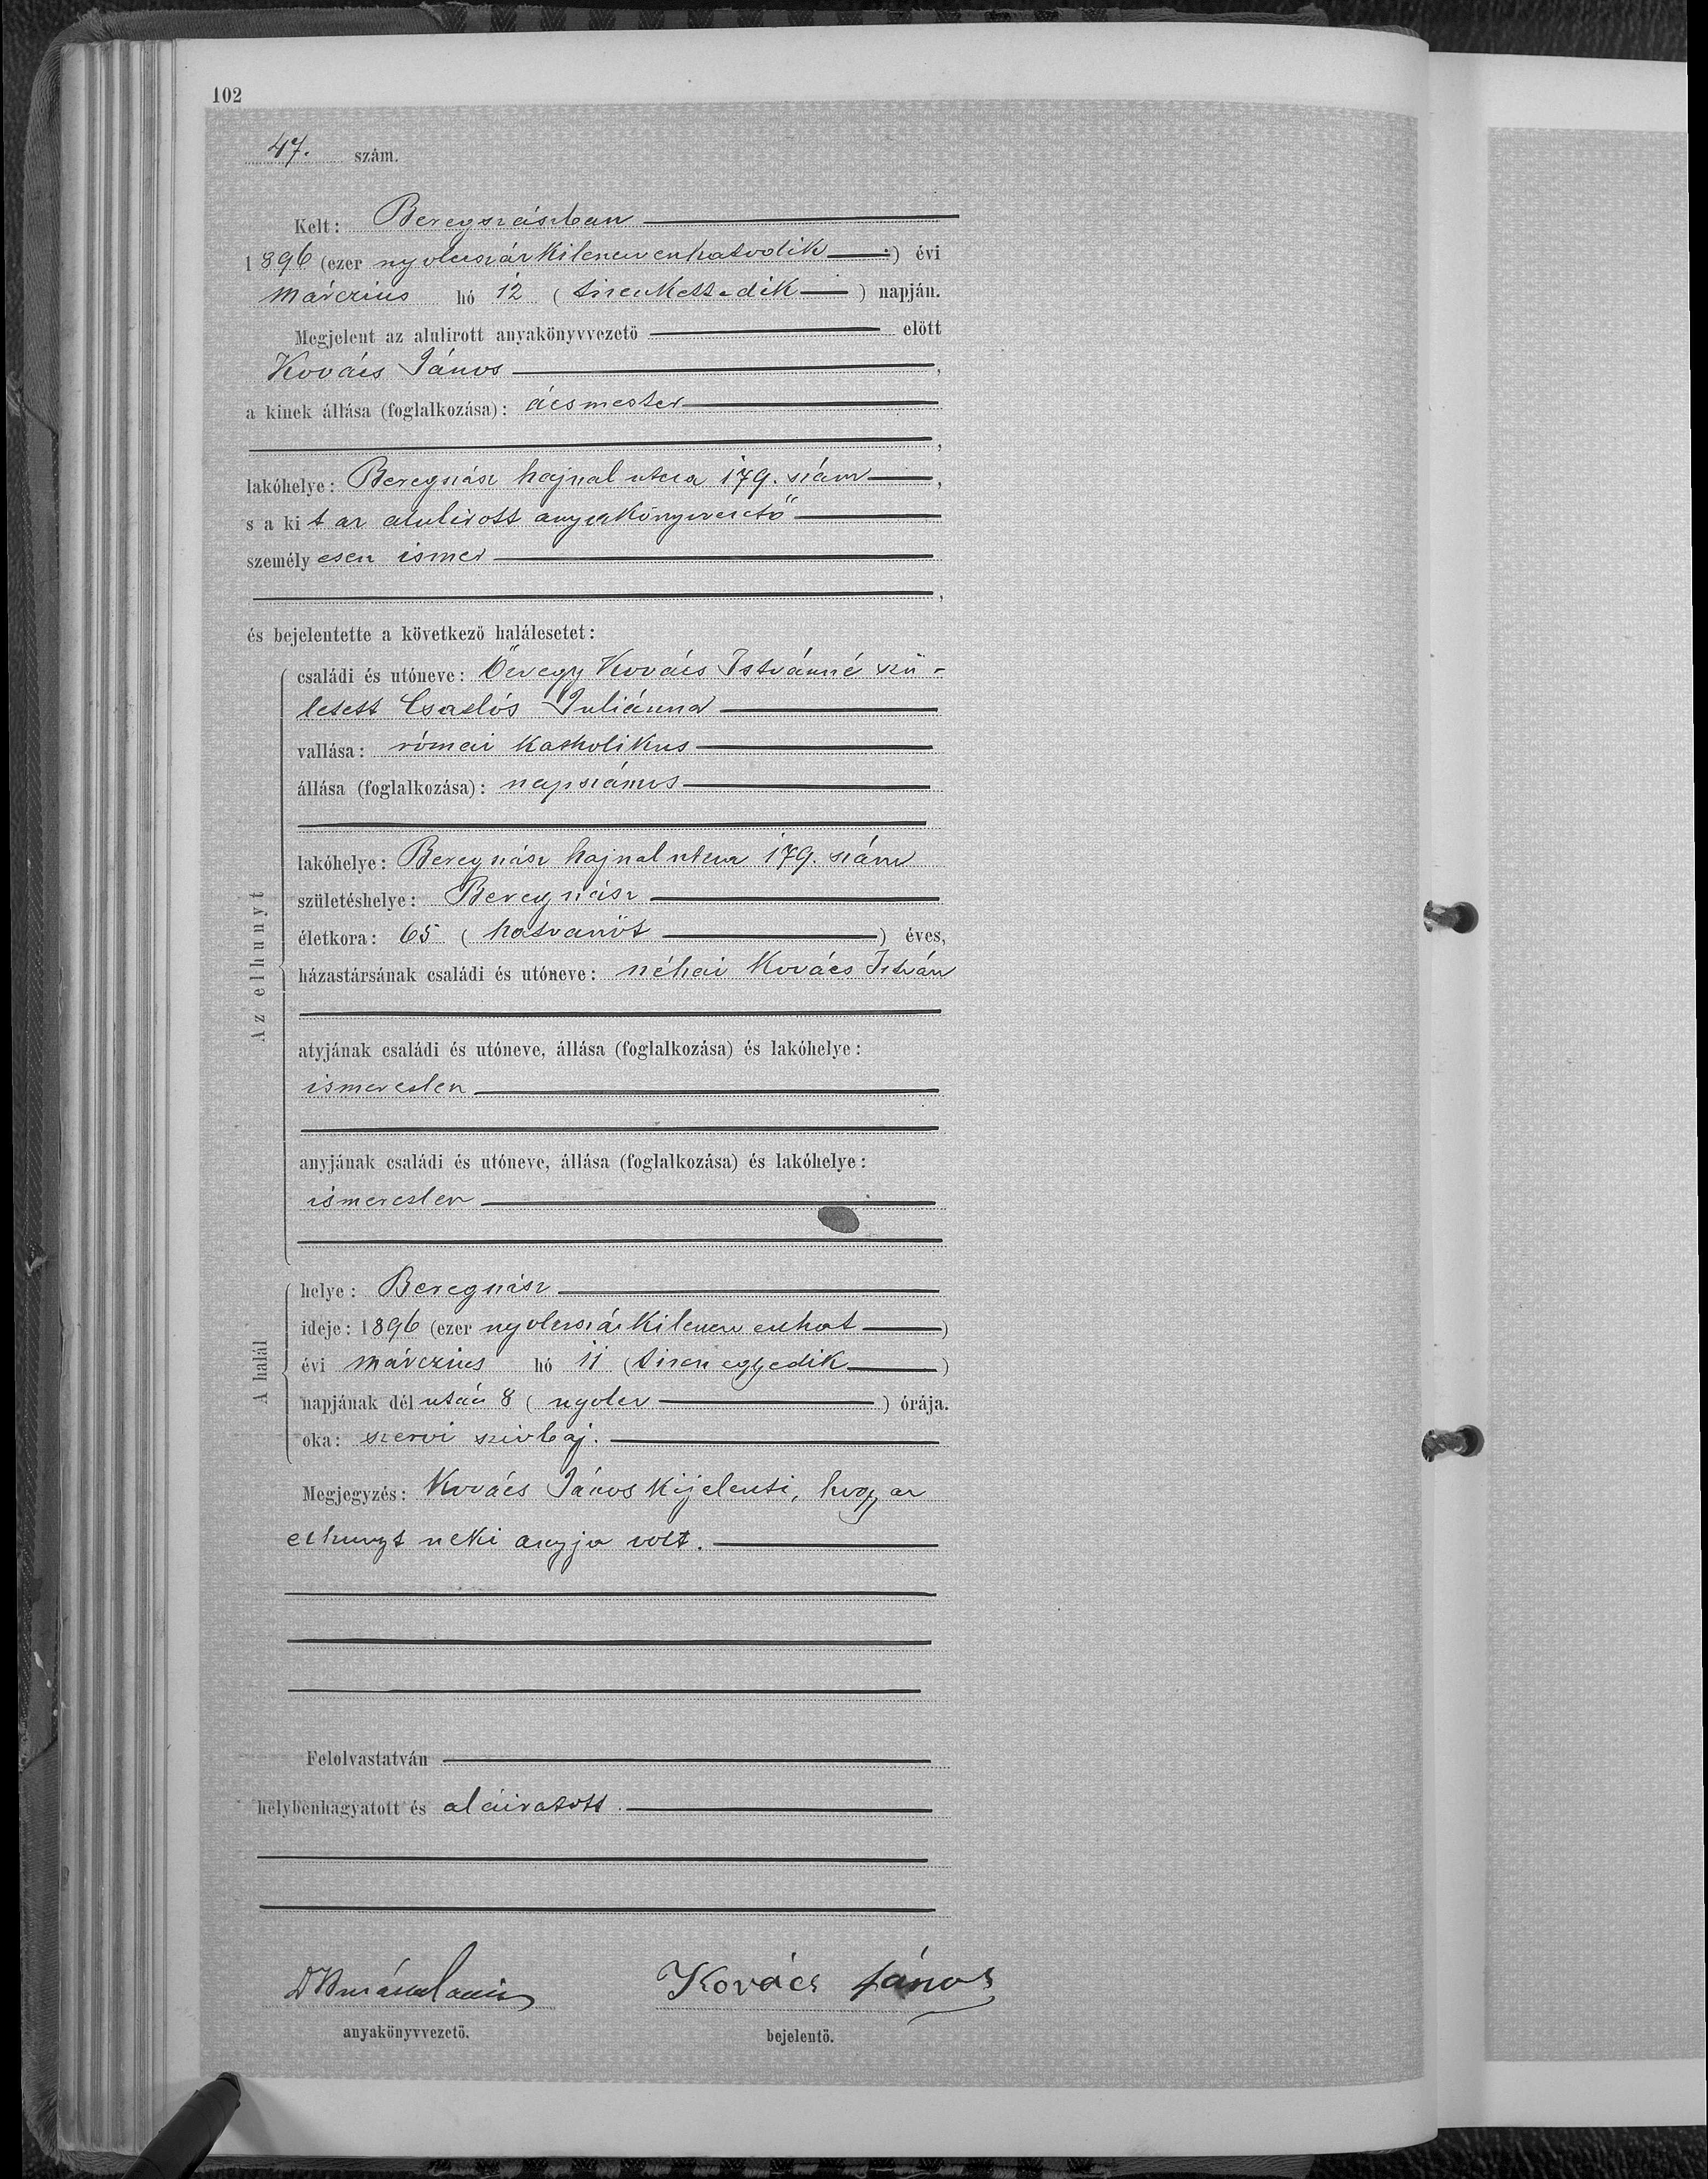 102
47. szám.
Kelt: Beregszászban
1896 (ezer nyolczszázkilenczvenhatodik) évi
márczius hó 12 (tizenkettedik) napján.
Megjelent az alulirott anyakönyvvezető előtt
Kovács János,
a kinek állása (foglalkozása): ácsmester
,
lakóhelye: Beregszász hajnal utcza 179. szám,
s a kit az alulirott anyakönyvvezető
személyesen ismer
,
és bejelentette a következő halálesetet:
Az elhunyt
családi és utóneve: Özvegy Kovács Istvánné szü-
letett Csatlós Juliánna
vallása: római katholikus
állása (foglalkozása): napszámos
lakóhelye: Beregszász hajnal utcza 179. szám
születéshelye: Beregszász
életkora: 65 (hatvanöt) éves,
házastársának családi és utóneve: néhai Kovács István
atyjának családi és utóneve, állása (foglalkozása) és lakóhelye:
ismeretlen
anyjának családi és utóneve, állása (foglalkozása) és lakóhelye:
ismeretlen
A halál
helye: Beregszász
ideje: 1896 (ezer nyolczszázkilenczvenhat)
évi márczius hó 11 (tizenegyedik)
napjának dél után 8 (nyolcz) órája.
oka: szervi szivbaj.
Megjegyzés: Kovács János kijelenti, hogy az
elhunyt neki anyja volt.
Felolvastatván
helybenhagyatott és aláiratott.
Kovács János
anyakönyvvezető. bejelentő.